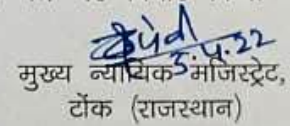 5.4.22
मुख्य न्यायिक मजिस्ट्रेट,
टोंक (राजस्थान)